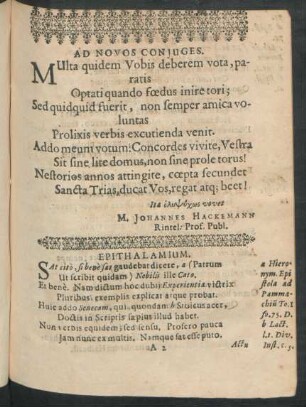 AD NOVOS CONJUGES.
MUlta quidem Vobis deberem vota, pa-
ratis
Optati quando fœdus inire tori;
Sed quidquid fuerit, non semper amica vo-
luntas
Prolixis verbis excutienda venit.
Addo meum votum: Concordes vivite, Vestra
Sit sine lite domus, non sine prole torus!
Nestorios annos attingite, cœpta secundet
Sancta Trias, ducat Vos, regat atq; beet!
Ita
M. JOHANNES HACKEMANN
Rintel. Prof. Publ.
EPITHALAMIUM.
SAt citò, si benè: sat gaudebat dicere, a (Patrum
Ut scribit quidam) Nobilis ille Cato.
Et benè. Nam dictum hoc dubiò Experientia victrix
Pluribus exemplis explicat atque probat.
Huic addo Senecam, qui, quondam b Stoicus acer,
Doctis in Scriptis sæpius illud habet.
Non verbis equidem; sed sensu, Profero pauca
Jam nunc ex multis. Namque sat esse puto.
A 2
Actu
a Hiero-
nym. Epi
stola ad
Pamma-
chiũ To. I
fo. 75. D.
b Lact.
l. 1. Div.
Inst. c. 5.